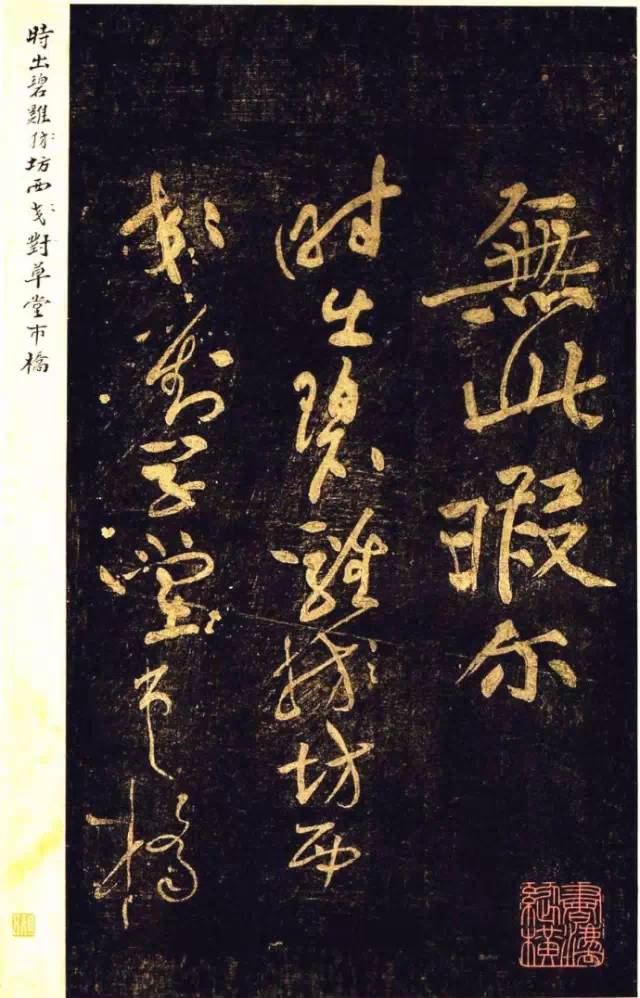 無此暇尔
時出碧雞坊西
對草堂市橋
時出碧雞坊西對草堂市橋
書灋縱橫